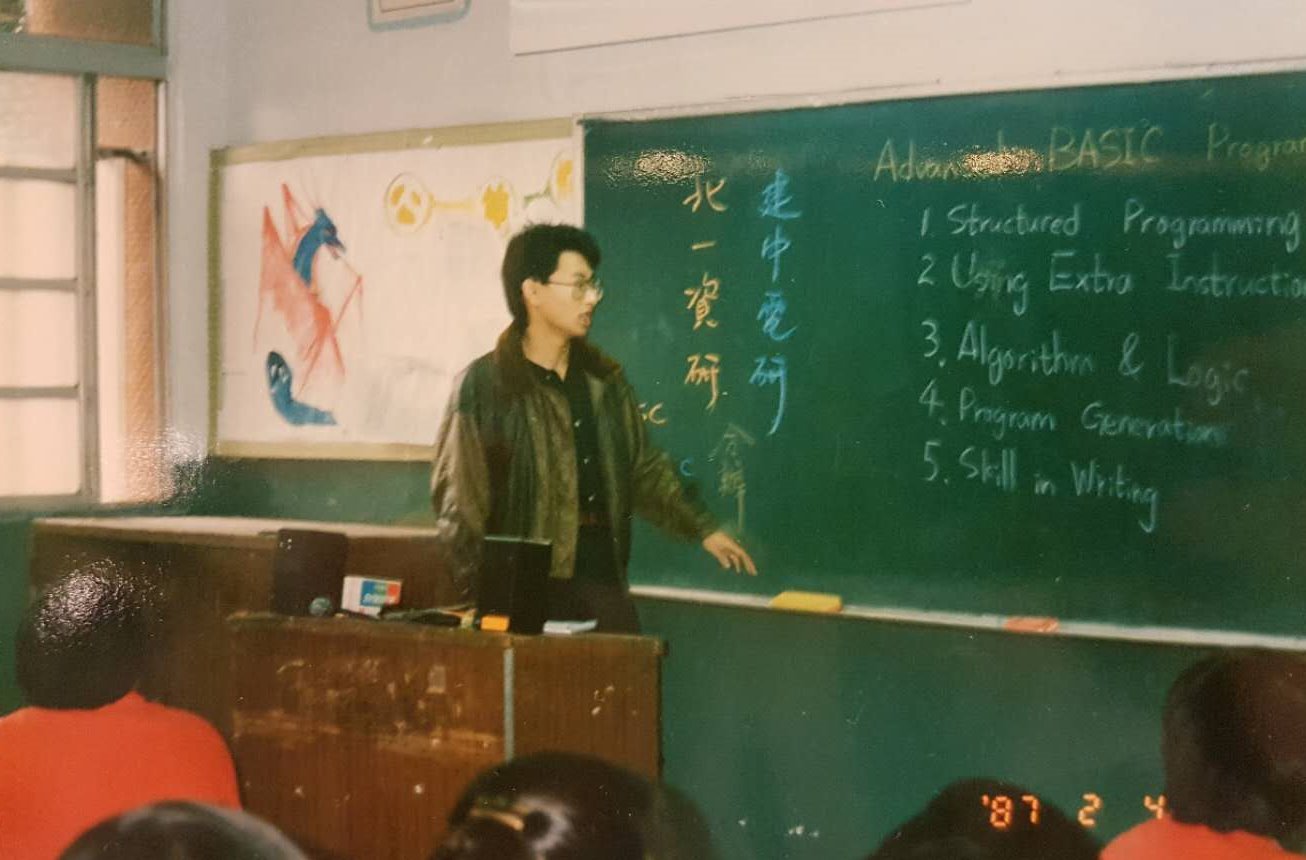 建中電研
北一資研
合辦
BASIC Program
1 Structured Programming
2 Using Extra Instruction
3. Algorithm & Logic
4. Program Generation
5. Skill in Writing
'87 2 4